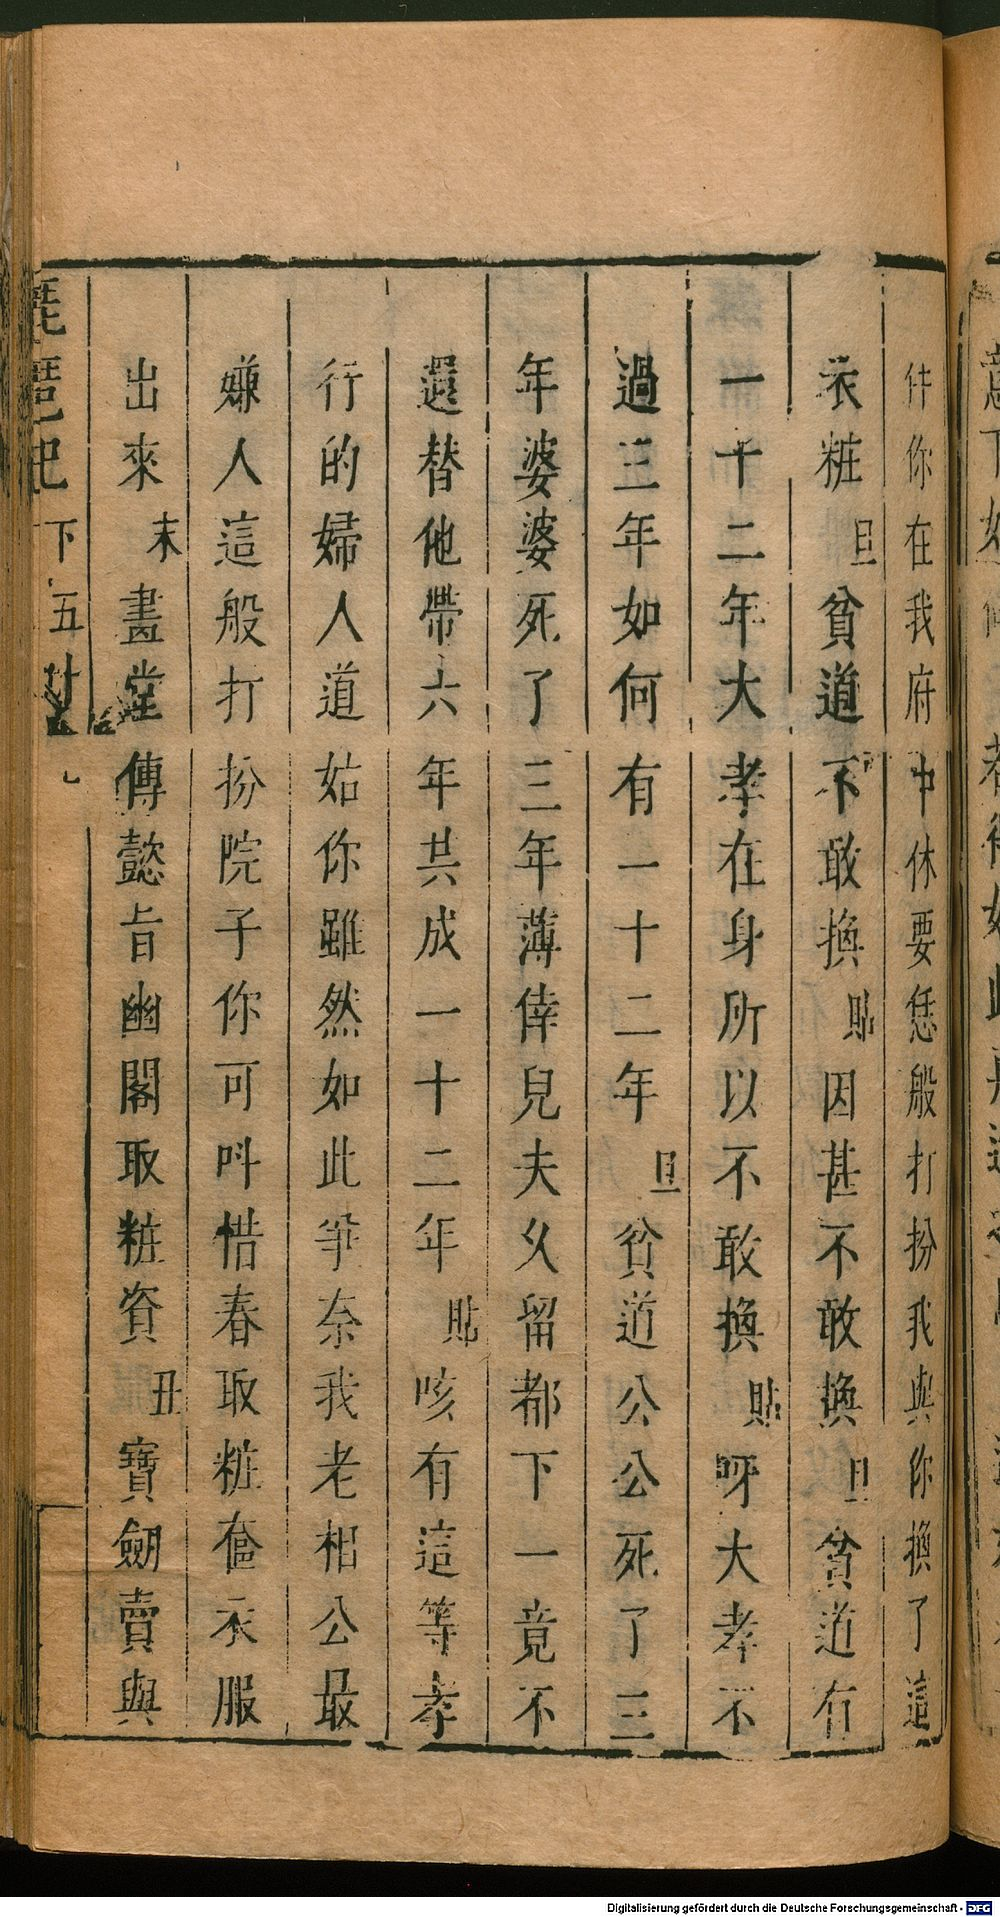 件你在我府中休要恁般打扮我與你換了這
衣粧旦貧道不敢換貼因甚不敢換旦貧道有
一十二年大孝在身所以不敢換貼呀大孝不
過三年如何有一十二年旦貧道公公死了三
年婆婆死了三年薄倖兒夫久留都下一竟不
還替他帶六年共成一十二年貼咳有這等孝
行的婦人道姑你雖然如此爭奈我老相公最
嫌人這般打扮院子你可叫惜春取粧奩衣服
出來末畫堂傳懿旨幽閣取粧資丑寶劒賣與
琵琶記 下 五十
Digitalisierung gefördert durch die Deutsche Forschungsgemeinschaft - DFG